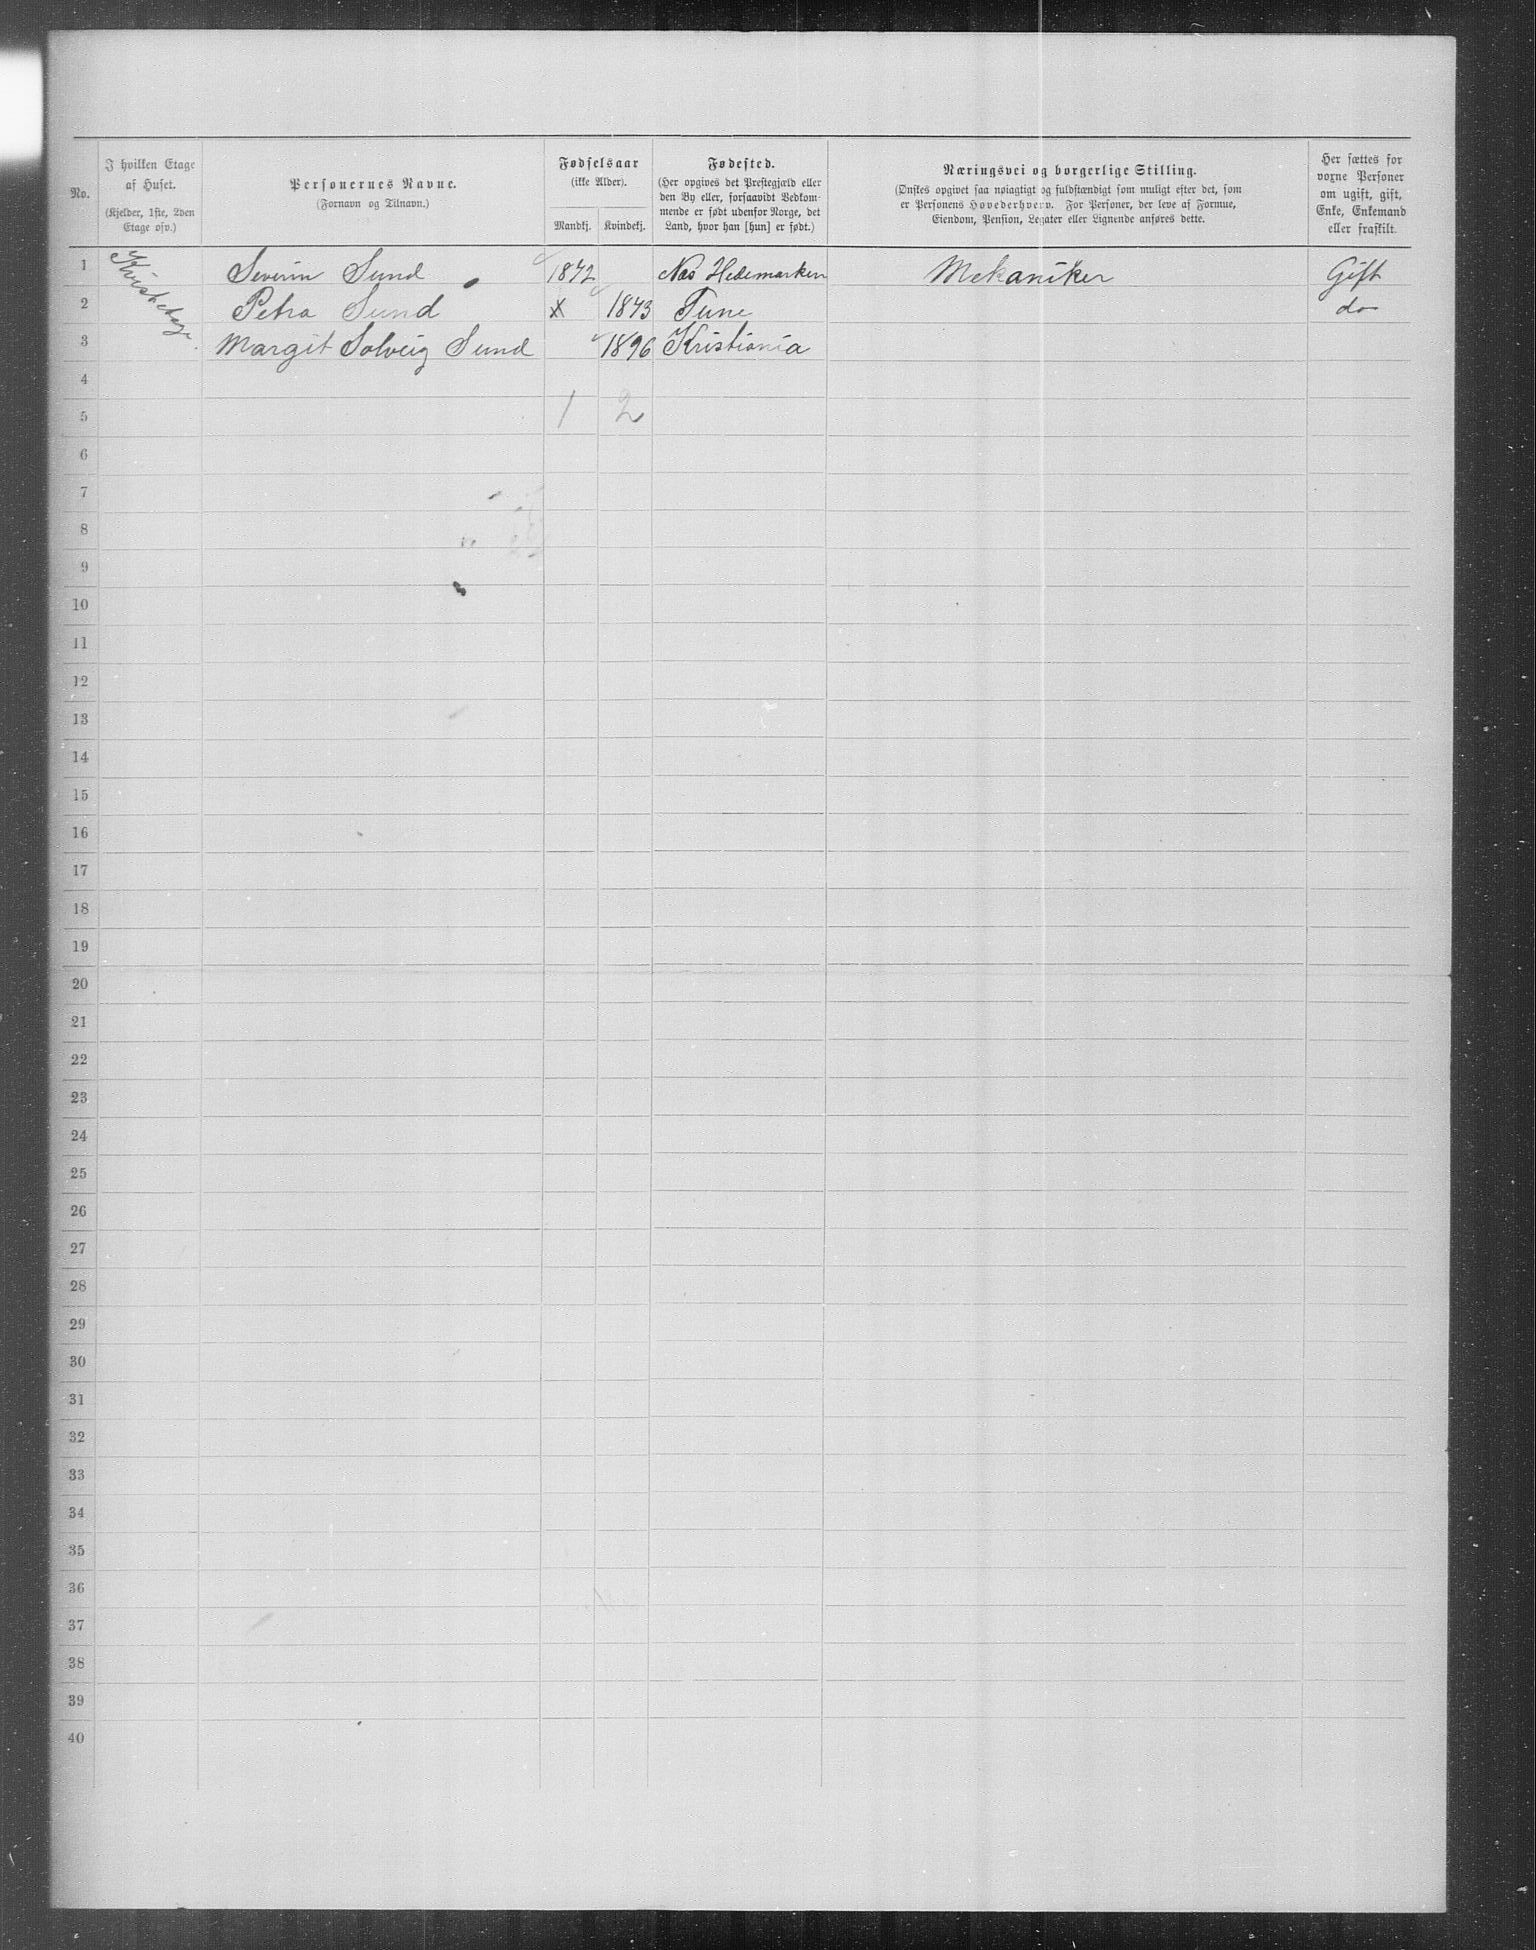 No.
I hvilken Etage
af Huset.
(Kjelder, 1ste, 2den
Etage osv.)
Personernes Navne.
(Fornavn og Tilnavn.)
Fødselsaar
(ikke Alder).
Mandkj. Kvindekj.
Fødested.
(Her opgives det Prestegjæld eller
den By eller, forsaavidt Vedkom-
mende er født udenfor Norge, det
Land, hvor han [hun] er født.)
Næringsvei og borgerlige Stilling.
(Ønskes opgivet saa nøiagtigt og fuldstændigt som muligt efter det, som
er Personens Hovederhverv. For Personer, der leve af Formue,
Eiendom, Pension, Legater eller Lignende anføres dette.
Her sættes for
voxne Personer
om ugift, gift,
Enke, Enkemand
eller fraskilt.
Kvistetage.
1 Severin Sund 1872 Nes Hedemarken Mekaniker Gift
2 Petra Sund x 1873 Tune do
3 Margit Solveig Sund 1896 Kristiania
4
5 1 2
6
7
8
9
10
11
12
13
14
15
16
17
18
19
20
21
22
23
24
25
26
27
28
29
30
31
32
33
34
35
36
37
38
39
40